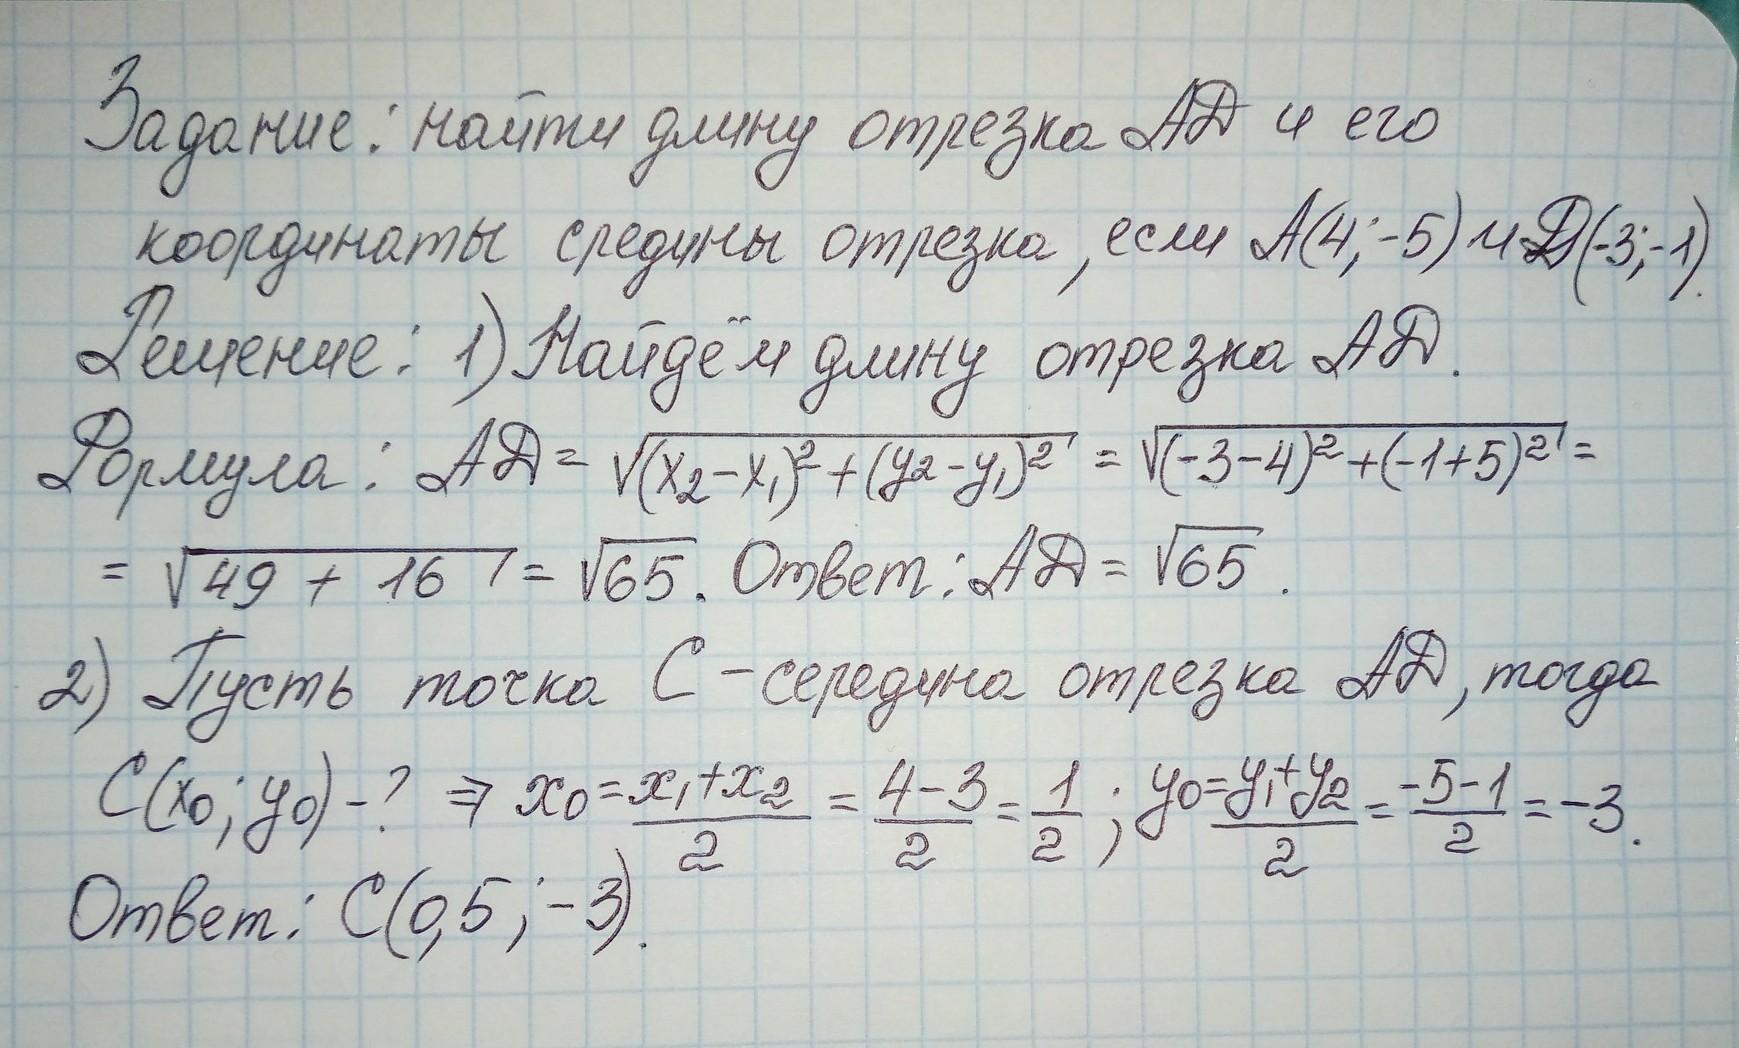 Задание: найти длину отрезка АД и его
координаты средины отрезка, если А(4;-5) и Д(-3;-1).
Решение: 1) Найдём длину отрезка АД.
Формула: АД = √(x₂-x₁)²+(y₂-y₁)² = √(-3-4)²+(-1+5)² =
= √49 + 16 = √65. Ответ: АД = √65.
2) Пусть точка С - середина отрезка АД, тогда
С(x₀; y₀) - ? ⇒ x₀ = x₁+x₂/2 = 4-3/2 = 1/2; y₀ = y₁+y₂/2 = -5-1/2 = -3.
Ответ: С(0,5; -3).